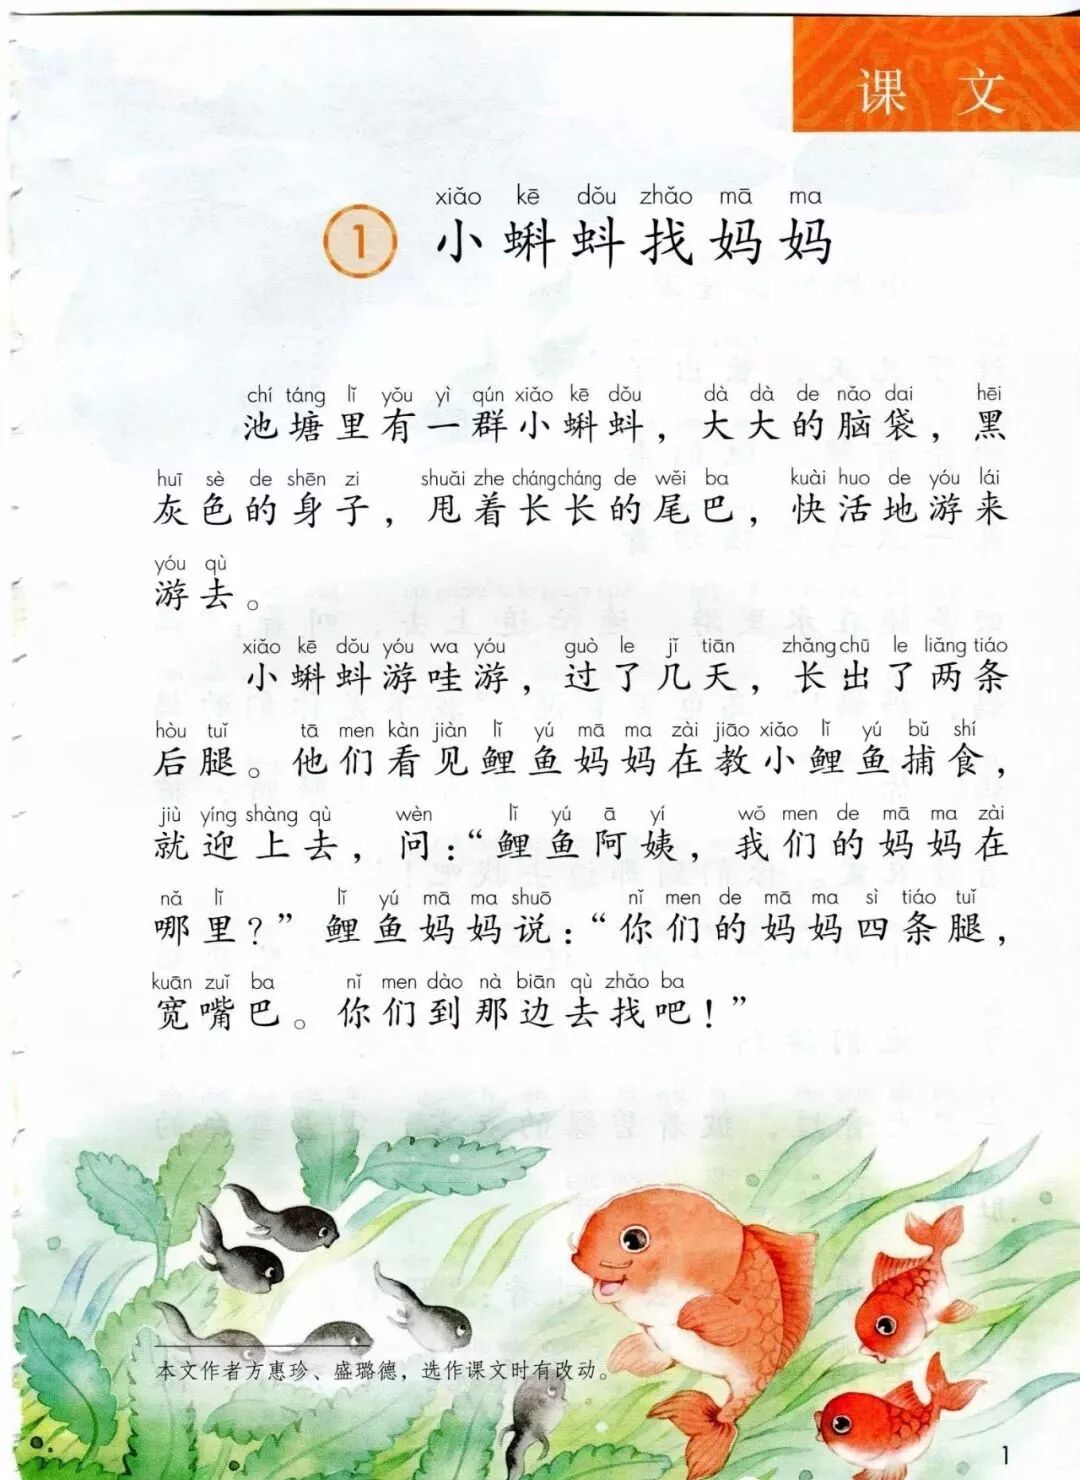 课 文
xiǎo kē dǒu zhǎo mā ma
1 小蝌蚪找妈妈
chí táng lǐ yǒu yì qún xiǎo kē dǒu dà dà de nǎo dai hēi
池塘里有一群小蝌蚪，大大的脑袋，黑
huī sè de shēn zi shuǎi zhe cháng cháng de wěi ba kuài huo de yóu lái
灰色的身子，甩着长长的尾巴，快活地游来
yóu qù
游去。
xiǎo kē dǒu yóu wa yóu guò le jǐ tiān zhǎng chū le liǎng tiáo
小蝌蚪游哇游，过了几天，长出了两条
hòu tuǐ tā men kàn jiàn lǐ yú mā ma zài jiāo xiǎo lǐ yú bǔ shí
后腿。他们看见鲤鱼妈妈在教小鲤鱼捕食，
jiù yíng shàng qù wèn lǐ yú ā yí wǒ men de mā ma zài
就迎上去，问：“鲤鱼阿姨，我们的妈妈在
nǎ lǐ lǐ yú mā ma shuō nǐ men de mā ma sì tiáo tuǐ
哪里？”鲤鱼妈妈说：“你们的妈妈四条腿，
kuān zuǐ ba nǐ men dào nà biān qù zhǎo ba
宽嘴巴。你们到那边去找吧！”
本文作者方惠珍、盛璐德，选作课文时有改动。
1